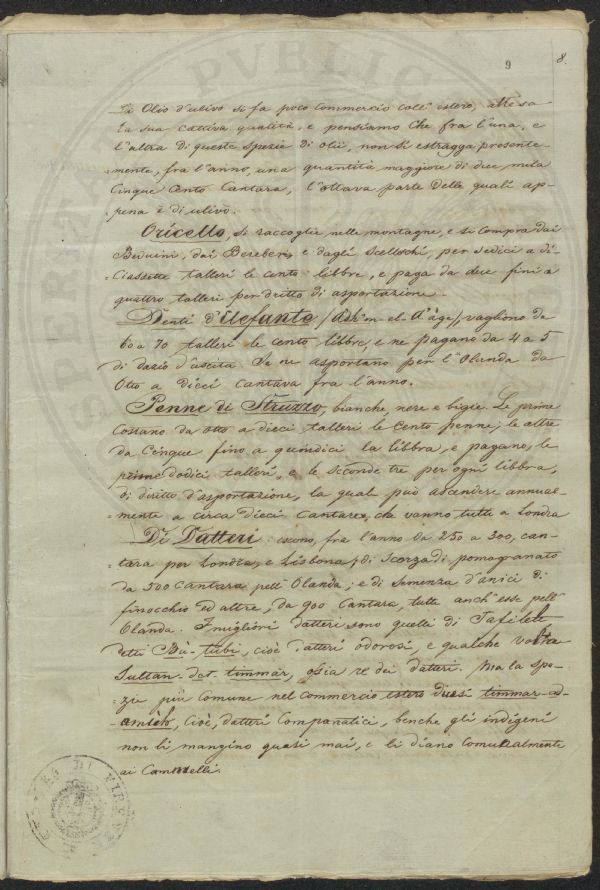 9
8.
Di Olio d'ulivo si fa poco commercio coll' estero, attesa
la sua cattiva qualità, e pensiamo che fra l'una, e
l'altra di queste spezie di olii, non si estragga presente-
-mente, fra l'anno, una quantità maggiore di due mila
Cinque Cento Cantara, l'ottava parte delle quali ap-
-pena è di ulivo.
Oricello, si raccoglie nelle montagne, e si compra dai
Beduini, dai Bereberi, e dagli Scellochi, per sedici a di-
-ciassette talleri le cento libbre, e paga da due fini a
quattro talleri per dritto di asportazione.
Denti d'Elefante (Adm el-A'àge), vagliono da
60 a 70 talleri le cento libbre, e ne pagano da 4 a 5
di dazio d'uscita. Se ne asportano per l'Olanda da
Otto a Dieci cantara fra l'anno.
Penne di Struzzo, bianche, nere e bigie. Le prime
Costano da otto a dieci talleri le cento penne; le altre
da Cinque fino a quindici la libbra, e pagano, le
prime dodici talleri, e le seconde tre per ogni libbra,
di diritto d'asportazione, la quale può ascendere annual-
-mente a circa Dieci Cantara, che vanno tutti a Londra
Di Datteri escono, fra l'anno da 250 a 300, can-
-tara per Londra, e Lisbona; di Scorza di pomogranato
da 500 Cantara pell' Olanda; e di Semenza d'anici di
finocchio ed altre, da 900 Cantara, tutte anch'esse pell'
Olanda. I migliori datteri sono quelli di Tafilelt
detti Bù-tubi, cioè datteri odorosi, e qualche volta
Sultan-det-timmàr, ossia re dei datteri. Ma la spe-
-zie più comune nel commercio estero dicesi timmar-a-
-amièh, cioè, datteri Companatici, benche gli indigeni
non li mangino quasi mai, e li diano comunalmente
ai Cammelli.